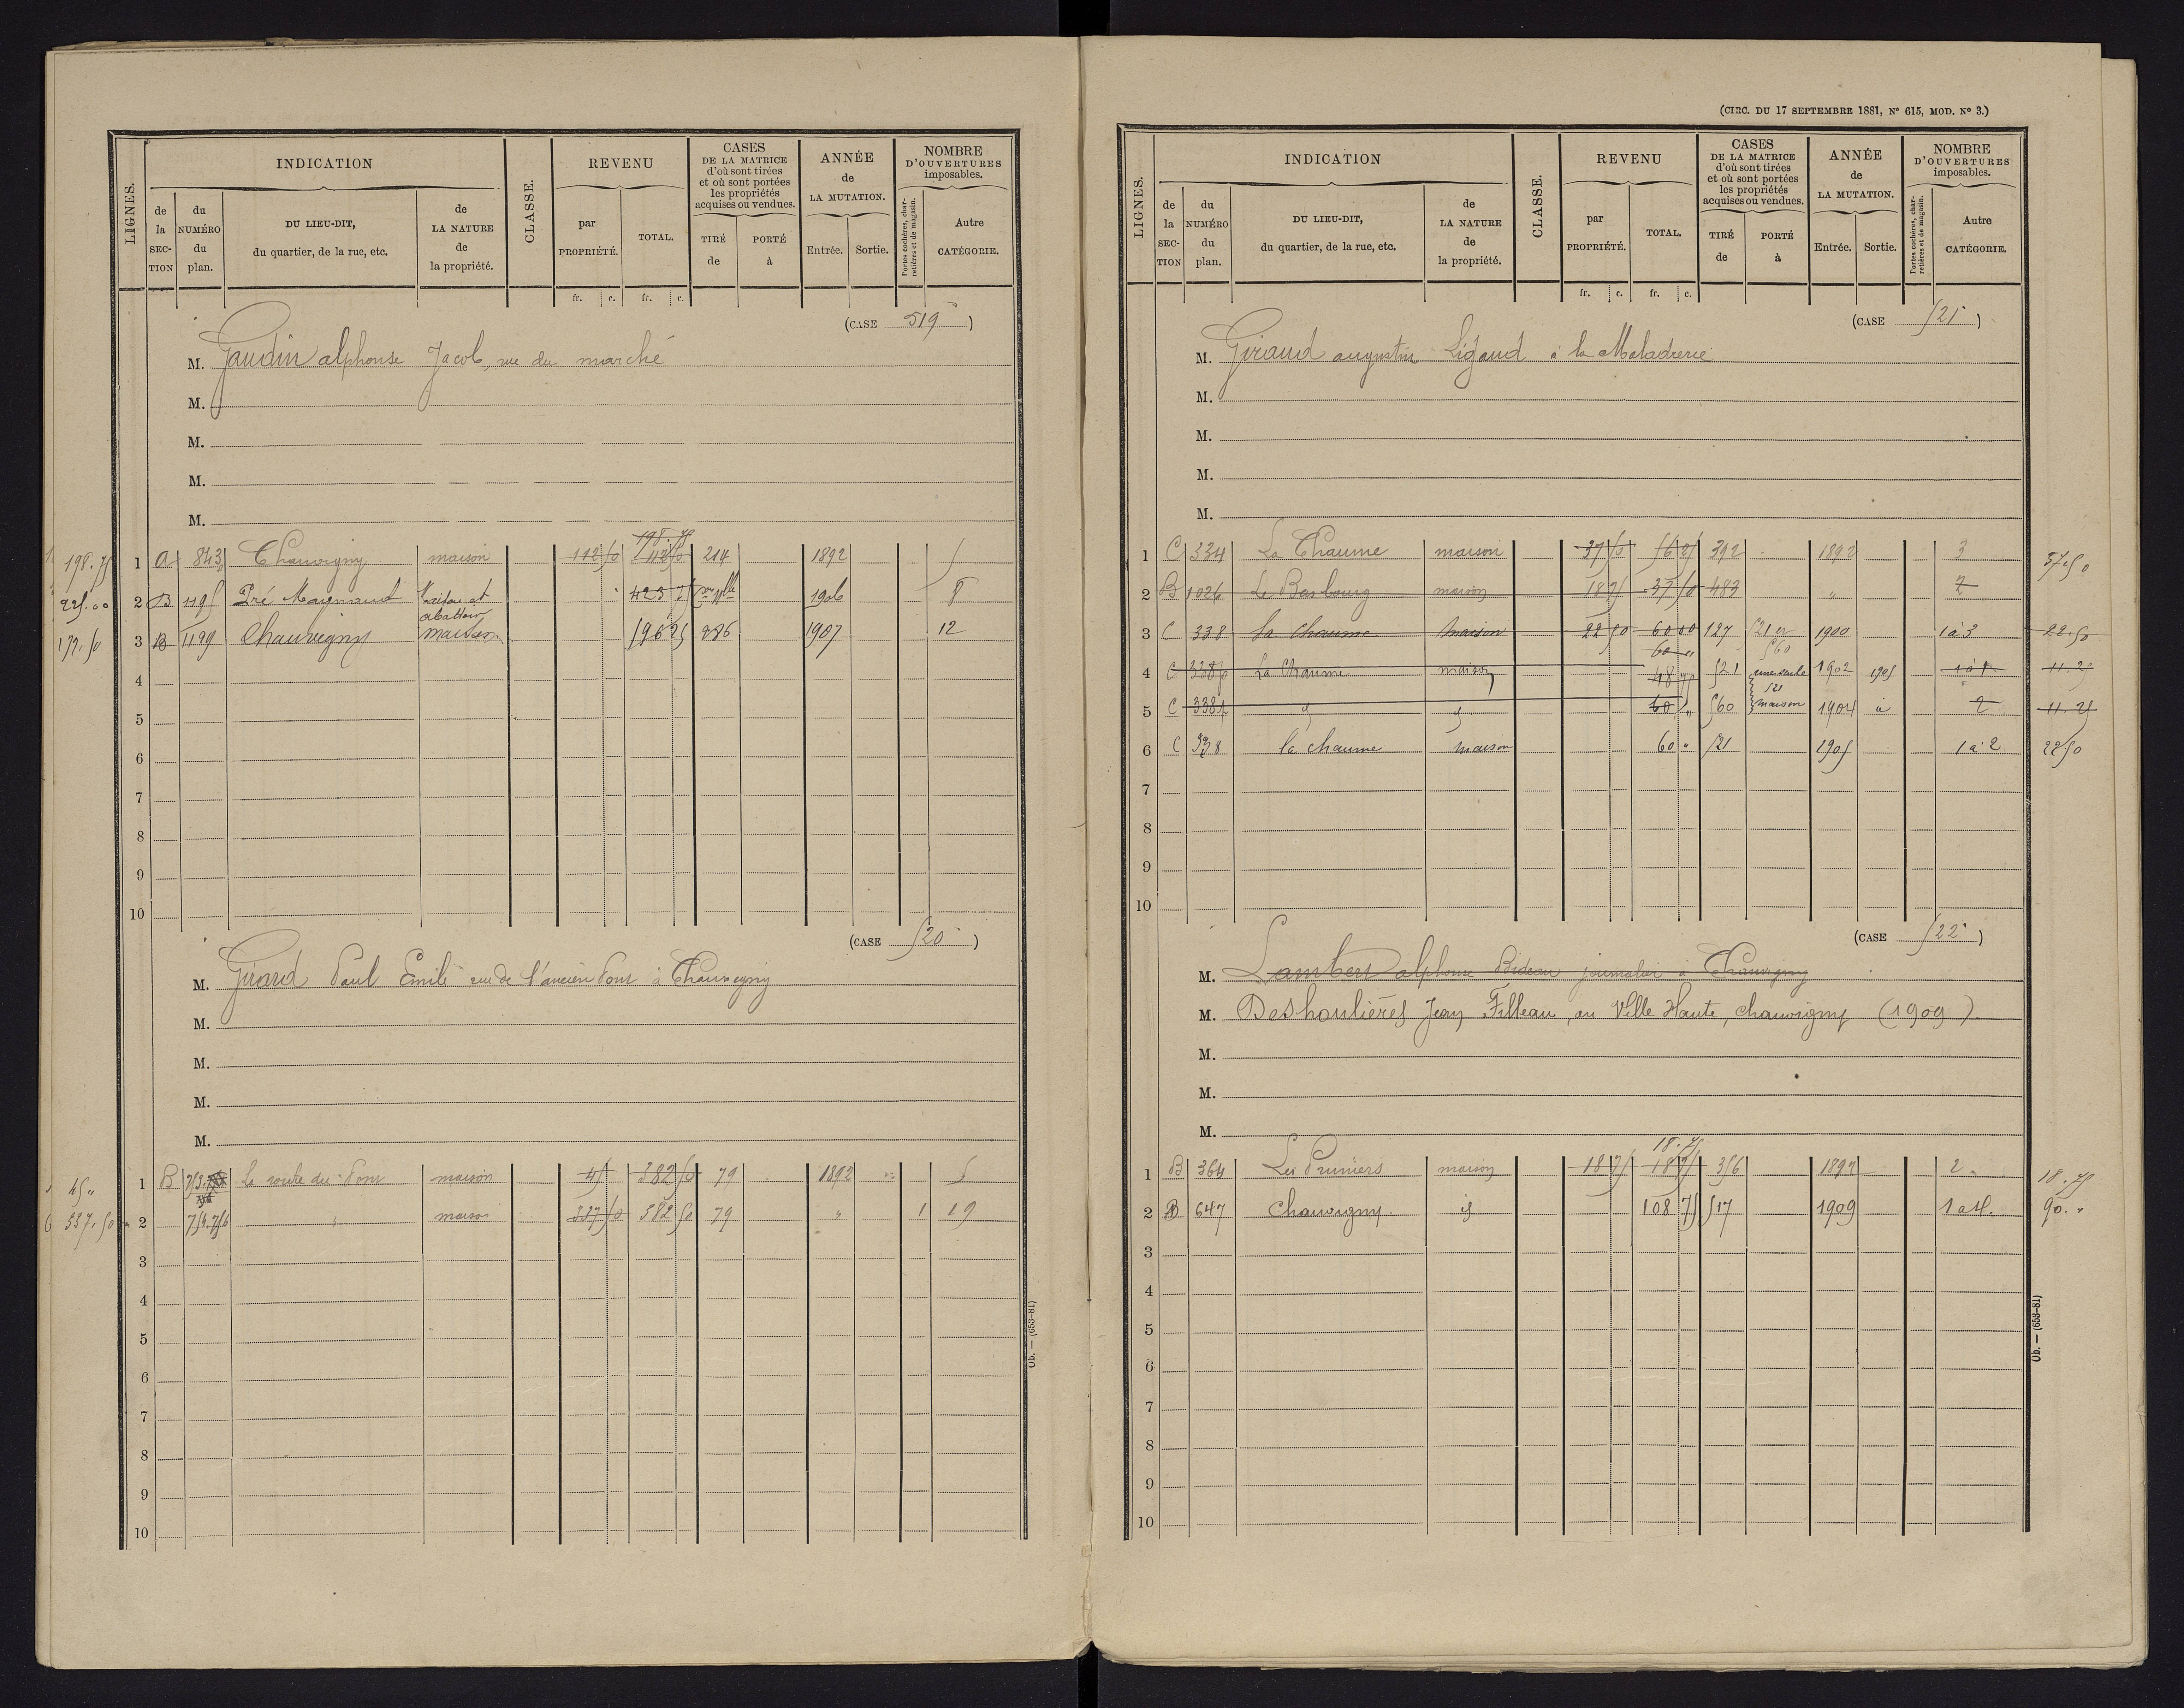 LIGNES.
INDICATION
de la SECTION
du NUMÉRO du plan.
DU LIEU-DIT, du quartier, de la rue, etc.
de LA NATURE de la propriété.
CLASSE.
REVENU
par PROPRIÉTÉ.
TOTAL.
fr. c. fr. c.
CASES DE LA MATRICE d'où sont tirées et où sont portées les propriétés acquises ou vendues.
TIRÉ de
PORTÉ à
ANNÉE de LA MUTATION.
Entrée. Sortie.
NOMBRE D'OUVERTURES imposables.
Portes cochères, charretières et de magasin.
Autre CATÉGORIE.
(CASE 519)
M. Gaudin alphonse Jacob, rue du marché
M.
M.
M.
M.
198.75
198.75 1 A 843 Chauvigny maison 112 50 112 50 214 1892 5
225.00 2 B 1195 Pré Maynaud Maison et abattoir 423 75 1906 8
172.50 3 B 1199 Chauvigny maison 596 25 286 1907 12
4
5
6
7
8
9
10
(CASE 520)
M. Girard Paul Emile rue de l'ancien Pont à Chauvigny
M.
M.
M.
M.
45 " 1 B 753 La route du Pont maison 45 382 50 79 1892 5
337.50 2 754.756 " maison 337 50 382 50 79 " 1 19
3
4
5
6
7
8
9
10
Ob. — (653-81)
(CIRC. DU 17 SEPTEMBRE 1881, N° 615, MOD. N° 3.)
LIGNES.
INDICATION
de la SECTION
du NUMÉRO du plan.
DU LIEU-DIT, du quartier, de la rue, etc.
de LA NATURE de la propriété.
CLASSE.
REVENU
par PROPRIÉTÉ.
TOTAL.
fr. c. fr. c.
CASES DE LA MATRICE d'où sont tirées et où sont portées les propriétés acquises ou vendues.
TIRÉ de
PORTÉ à
ANNÉE de LA MUTATION.
Entrée. Sortie.
NOMBRE D'OUVERTURES imposables.
Portes cochères, charretières et de magasin.
Autre CATÉGORIE.
(CASE 521)
M. Giraud augustin Ligaud à la Maladrerie
M.
M.
M.
M.
1 C 334 La Chaume maison 37 50 56 25 392 1892 3 37.50
2 B 1026 Le Bas bourg maison 18 75 37 50 483 " 2
3 C 338 La Chaume maison 22 50 60 00 127 521 et 560 1900 1 à 3 22.50
60 "
4 C 338p La Chaume maison 48 75 521 une seule 1902 1905 11.25
5 C 338p id id 60 " 560 521 maison 1904 id 2 11.25
6 C 338 la chaume maison 60 " 521 1905 1 à 2 22 50
7
8
9
10
(CASE 522)
M. Lambert alphonse Bideau journalier à Chauvigny
M. Deshoulières Jean Filleau, au Ville Haute, Chauvigny (1909)
M.
M.
M.
18.75
1 B 364 Les Pruniers maison 18 75 18 75 356 1897 2 18.75
2 D 647 Chauvigny id 108 75 517 1909 1 à 4. 90. "
3
4
5
6
7
8
9
10
Ob. — (653-81)